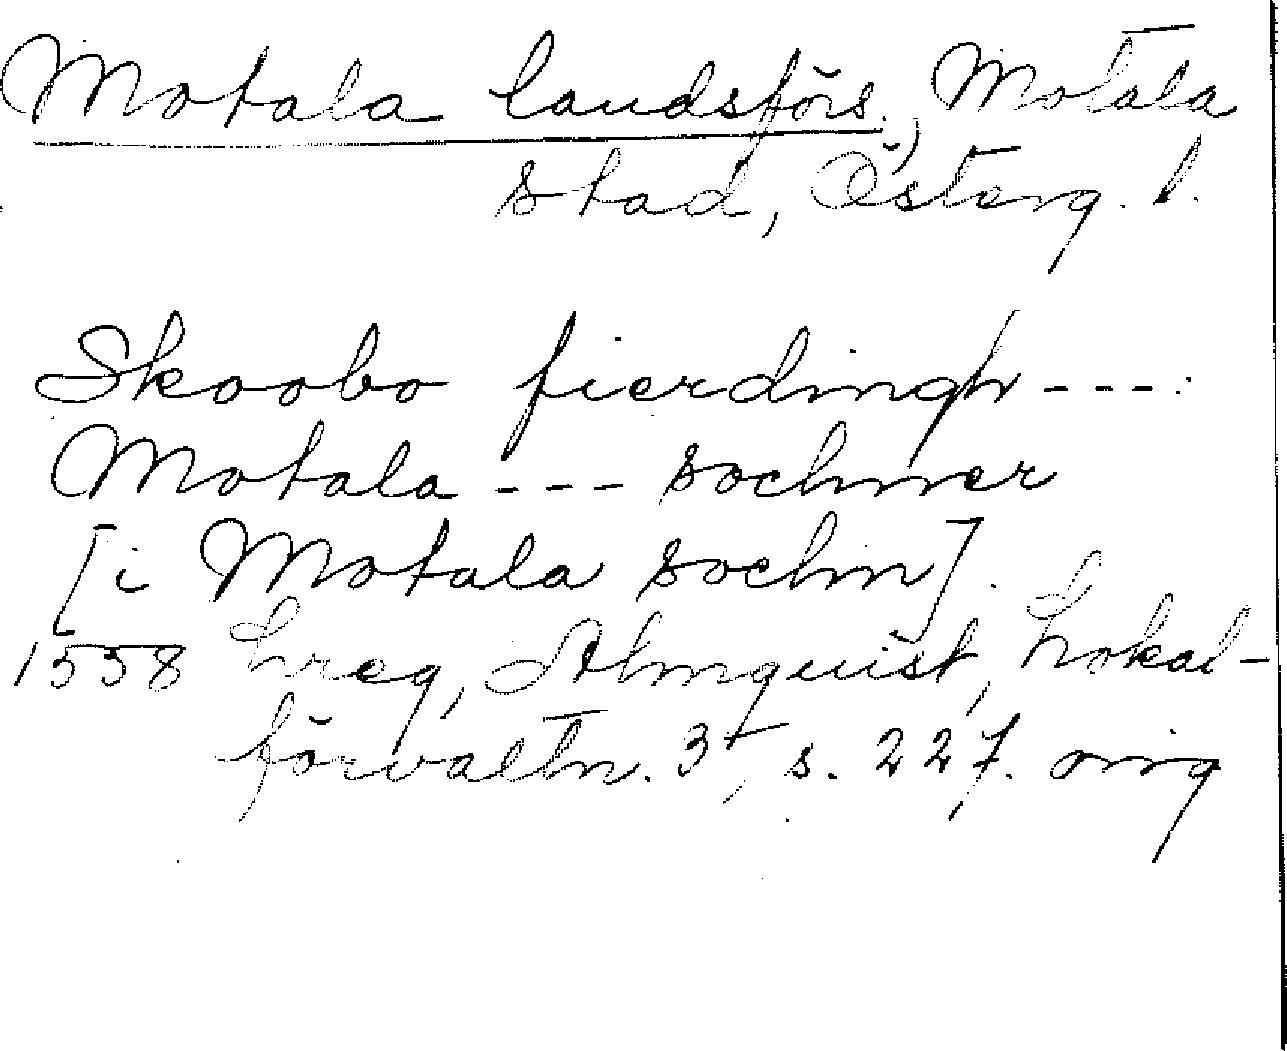 Motala landsförs., Motala
stad, Österg. l.
Skoobo fierdingh ---:
Motala --- sochner
[i Motala sochn].
1558 Lreg, Almquist, Lokal-
förvaltn. 3, s. 227. orig